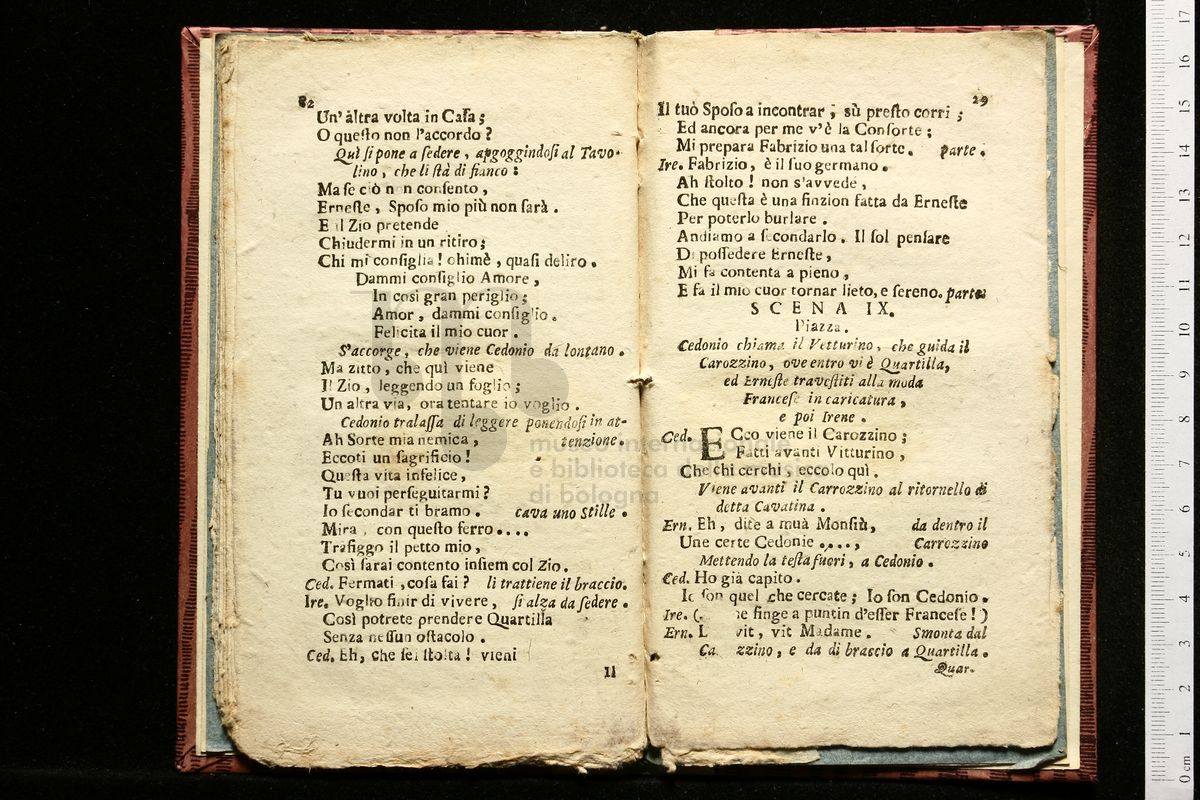 82
Un' àltra volta in Casa;
O questo non l'accordo?
Quì si pone a sedere, apgoggindosi al Tavo-
lino, che li stà di fianco:
Ma se ciò n n consento,
Erneste, Sposo mio più non sarà.
E il Zio pretende
Chiudermi in un ritiro;
Chi mi consiglia! ohimè, quasi deliro.
Dammi consiglio Amore,
In così gran periglio;
Amor, dammi consiglio.
Felicita il mio cuor.
S'accorge, che viene Cedonio da lontano.
Ma zitto, che quì viene
Il Zio, leggendo un foglio;
Un altra via, ora tentare io voglio.
Cedonio tralassa di leggere ponendosi in at-
Ah Sorte mia nemica, tenzione.
Eccoti un sagrificio!
Questa vita infelice,
Tu vuoi perseguitarmi?
Io secondar ti bramo. cava uno Stille.
Mira, con questo ferro....
Trafiggo il petto mio,
Così sarai contento insiem col Zio.
Ced. Fermati, cosa fai? li trattiene il braccio.
Ire. Voglio finir di vivere, si alza da sedere.
Così potrete prendere Quartilla
Senza nessun ostacolo.
Ced. Eh, che sei stolta! vieni
Il
29
Il tuò Sposo a incontrar; sù presto corri;
Ed ancora per me v'è la Consorte;
Mi prepara Fabrizio una tal sorte. parte.
Ire. Fabrizio, è il suo germano.
Ah stolto! non s'avvede,
Che questa è una finzion fatta da Erneste
Per poterlo burlare.
Andiamo a secondarlo. Il sol pensare
Di possedere Erneste,
Mi fa contenta a pieno,
E fa il mio cuor tornar lieto, e sereno. parte.
SCENA IX.
Piazza.
Cedonio chiama il Vetturino, che guida il
Carozzino, ove entro vi è Quartilla,
ed Erneste travestiti alla moda
Francese in caricatura,
e poi Irene.
Ced. ECco viene il Carozzino;
Fatti avanti Vitturino,
Che chi cerchi, eccolo quì.
Viene avanti il Carrozzino al ritornello di
detta Cavatina.
Ern. Eh, dite a muà Monsiù, da dentro il
Une certe Cedonie...., Carrozzino
Mettendo la testa fuori, a Cedonio.
Ced. Ho già capito.
Io son quel che cercate; Io son Cedonio.
Ire. (. e finge a puntin d'esser Francese!)
Ern. vit, vit Madame. Smonta dal
Ca zzino, e da di braccio a Quartilla.
Quar-
museo internazionale
e biblioteca
di bologna